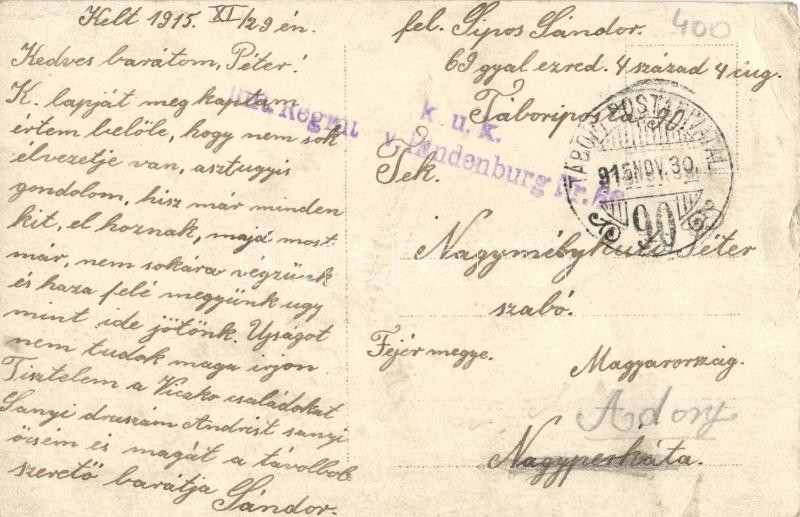 Kelt 1915. XI/29 én.
Kedves barátom, Péter!
K. lapját megkaptam
értem belőle, hogy nem sok
élvezetje van, asztugyis
gondolom, hisz már minden
kit, el hoznak, majd most
már, nem sokára végzünk
és haza felé megyünk ugy
mint ide jötönk. Ujságot
nem tudok maga irjon.
Tisztelem a Viczko családokat
Sanyi druszám Andrist sanyi
öcsém és magát a távolbol
szerető barátja Sándor.
400
fel. Sipos Sándor.
69 gyal ezred. 4 század 4 cug.
Táboriposta 90.
Tek.
Nagy Péter
szabó.
Fejér megye. Magyarország.
Adony
Nagyperkáta.
k. u. k.
Inft. Regmt v. Hindenburg Nr. 69
TÁBORI POSTAHIVATAL
915 NOV. 30.
90